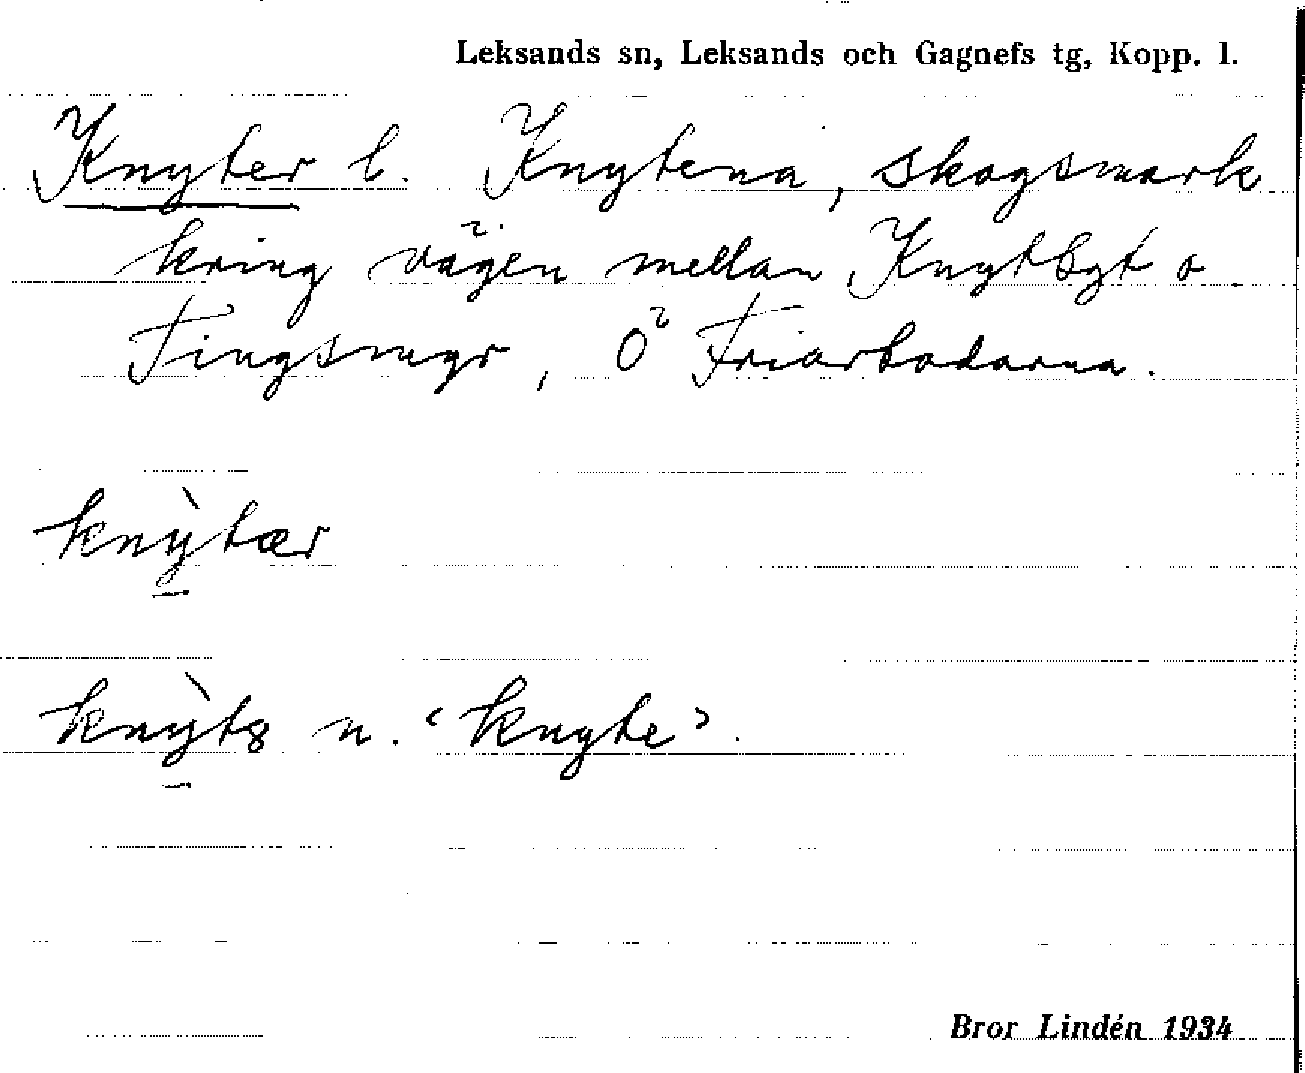 Leksands sn, Leksands och Gagnefs tg, Kopp. l.
Knyter l. Knytena, skogsmark
kring vägen mellan Knytbyt o
Tingsmyr, O² Friarbodarna.
knỳ̱tær
knỳ̱tə n. ‹knyte›.
Bror Lindén 1934